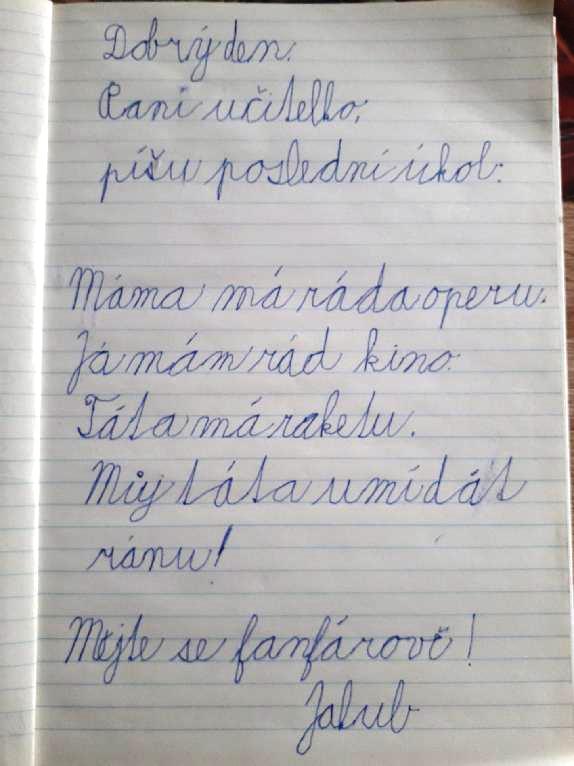 Dobrý den.
Paní učitelko,
píšu poslední úkol:
Máma má ráda operu.
Já mám rád kino.
Táta má raketu.
Můj táta umí dát
ránu!
Mějte se fanfárově!
Jakub